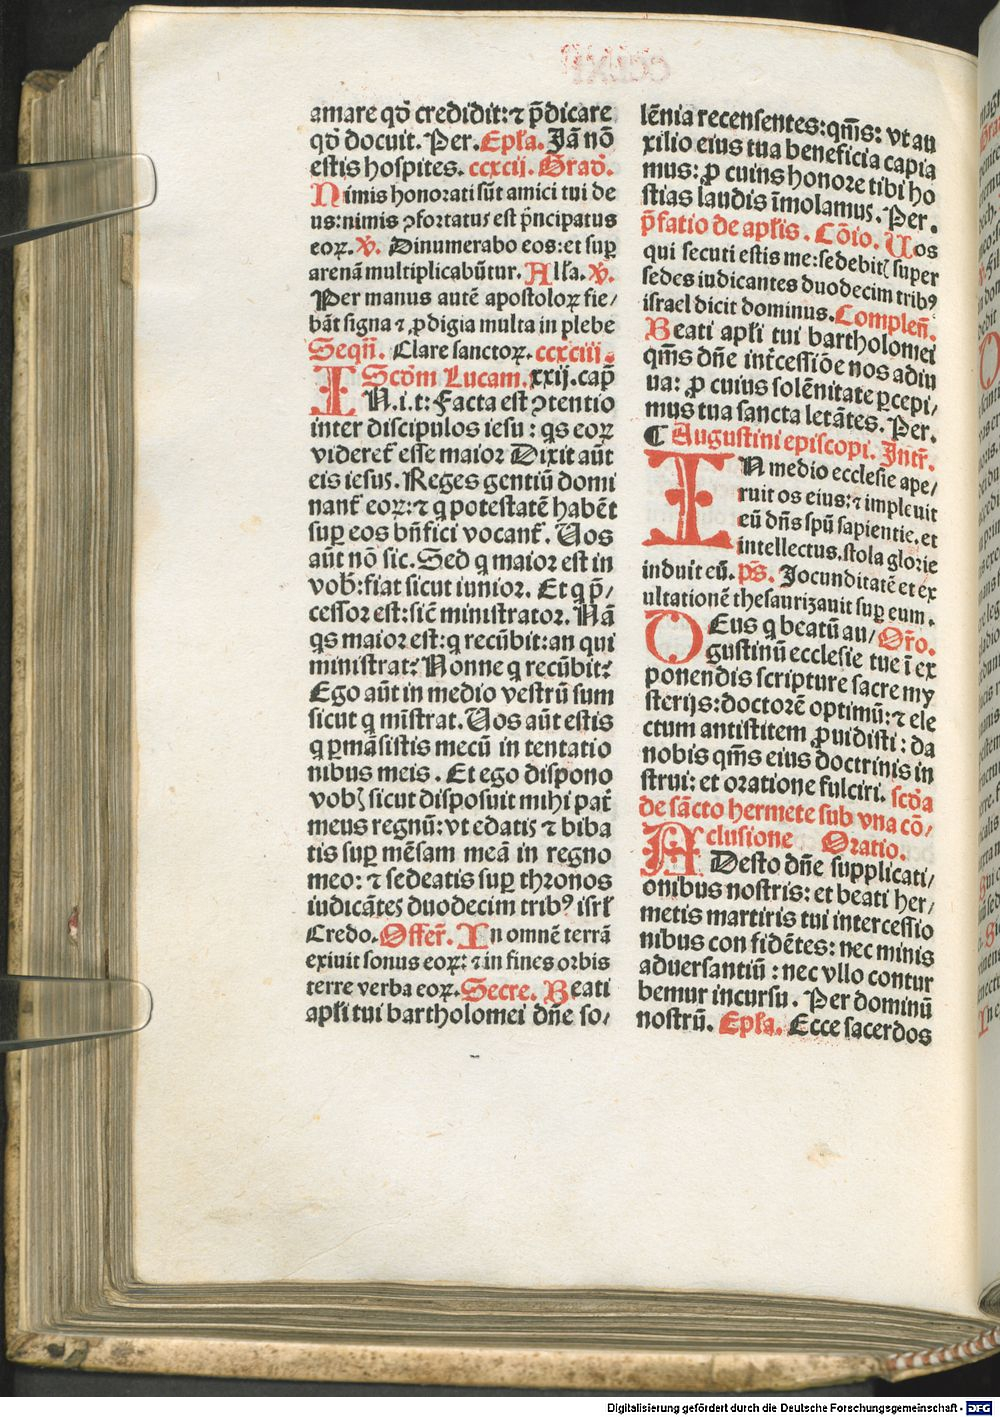 amare qđ credidit: ⁊ p̄dicare
qđ docuit. Per. Epl̄a. Jā nō
estis hospites. ccxcij. Grad̄.
Nimis honorati sūt amici tui de
us: nimis ꝯfortatus est p̄ncipatus
eoꝝ. V̄. Dinumerabo eos: et suꝑ
arenā multiplicabūtur. All̄a. V̄.
Per manus autē apostoloꝝ fie/
bāt signa ⁊ ꝓdigia multa in plebe
Seqn̄. Clare sanctoꝝ. ccxciii.
Scd̄m Lucam. xxij. cap̄
IN. i. t: Facta est ꝯtentio
inter discipulos iesu: qs eoꝝ
videret̄ esse maior Dixit aūt
eis iesus. Reges gentiū domi
nant̄ eoꝝ: ⁊ q potestatē habēt
suꝑ eos bn̄fici vocant̄. Uos
aūt nō sic. Sed q maior est in
vob̄: fiat sicut iunior. Et q p̄/
cessor est: sic̄ ministrator. Nā
qs maior est: q recūbit: an qui
ministrat? Nonne q recūbit?
Ego aūt in medio vestrū sum
sicut q mīstrat. Uos aūt estis
q ꝑmāsistis mecū in tentatio
nibus meis. Et ego dispono
vobꝫ sicut disposuit mihi pat̄
meus regnū: vt edatis ⁊ biba
tis suꝑ mēsam meā in regno
meo: ⁊ sedeatis suꝑ thronos
iudicātes duodecim tribꝰ isrl̄
Credo. Offer̄. In omnē terrā
exiuit sonus eoꝝ: ⁊ in fines orbis
terre verba eoꝝ. Secre. Beati
apl̄i tui bartholomei dn̄e so/
lēnia recensentes: qm̄s: vt au
xilio eius tua beneficia capia
mus: ꝓ cuius honore tibi ho
stias laudis īmolamus. Per.
p̄fatio de apl̄is. Cōio. Uos
qui secuti estis me: sedebitꝭ super
sedes iudicantes duodecim tribꝰ
israel dicit dominus. Complen̄.
Beati apl̄i tui bartholomei
qm̄s dn̄e int̄cessiōe nos adiu
ua: ꝓ cuius solēnitate ꝑcepi/
mus tua sancta letātes. Per.
¶ Augustini episcopi. Intr̄.
IN medio ecclesie ape/
ruit os eius: ⁊ impleuit
eū dn̄s spū sapientie. et
intellectus. stola glorie
induit eū. ps̄. Jocunditatē et ex
ultationē thesaurizauit suꝑ eum.
DEus q beatū au/ Or̄o.
gustinū ecclesie tue ī ex
ponendis scripture sacre my
sterijs: doctorē optimū: ⁊ ele
ctum antistitem ꝓuidisti: da
nobis qm̄s eius doctrinis in
strui: et oratione fulciri. scd̄a
de sācto hermete sub vna cō/
clusione Oratio.
ADesto dn̄e supplicati/
onibus nostris: et beati her/
metis martiris tui intercessio
nibus confidētes: nec minis
aduersantiū: nec vllo contur
bemur incursu. Per dominū
nostrū. Epl̄a. Ecce sacerdos
Digitalisierung gefördert durch die Deutsche Forschungsgemeinschaft - DFG